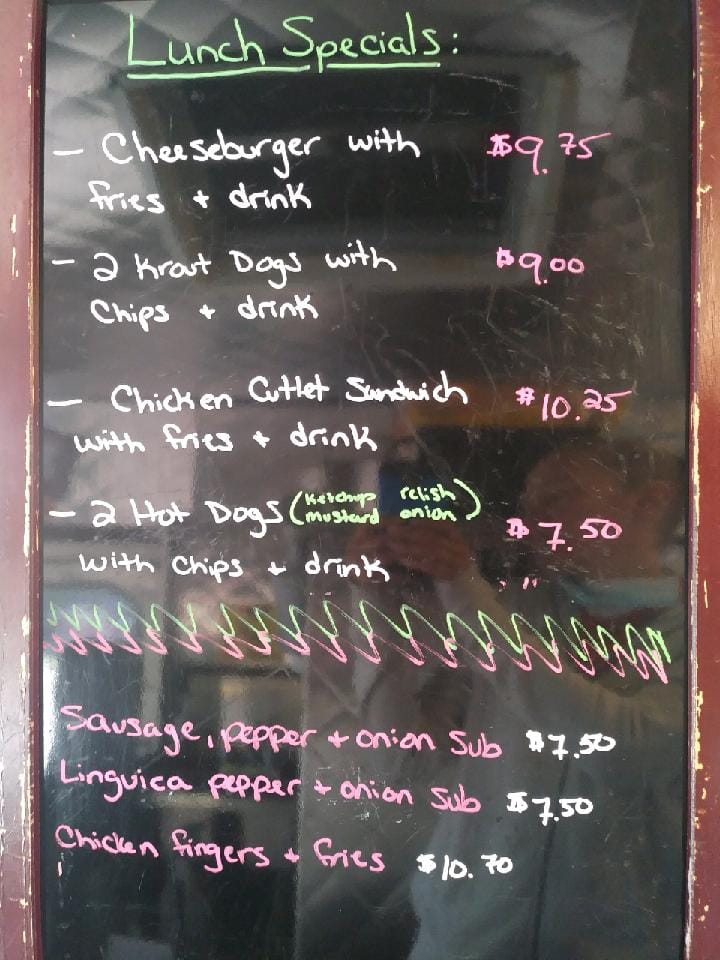 Lunch Specials:
- Cheeseburger with $9.75
fries + drink
- 2 Kraut Dogs with $9.00
Chips + drink
- Chicken Cutlet Sandwich $10.25
with fries + drink
- 2 Hot Dogs (Ketchup relish
mustard onion) $7.50
with chips + drink
Sausage, pepper + onion Sub $7.50
Linguica pepper + onion Sub $7.50
Chicken fingers + fries $10.70